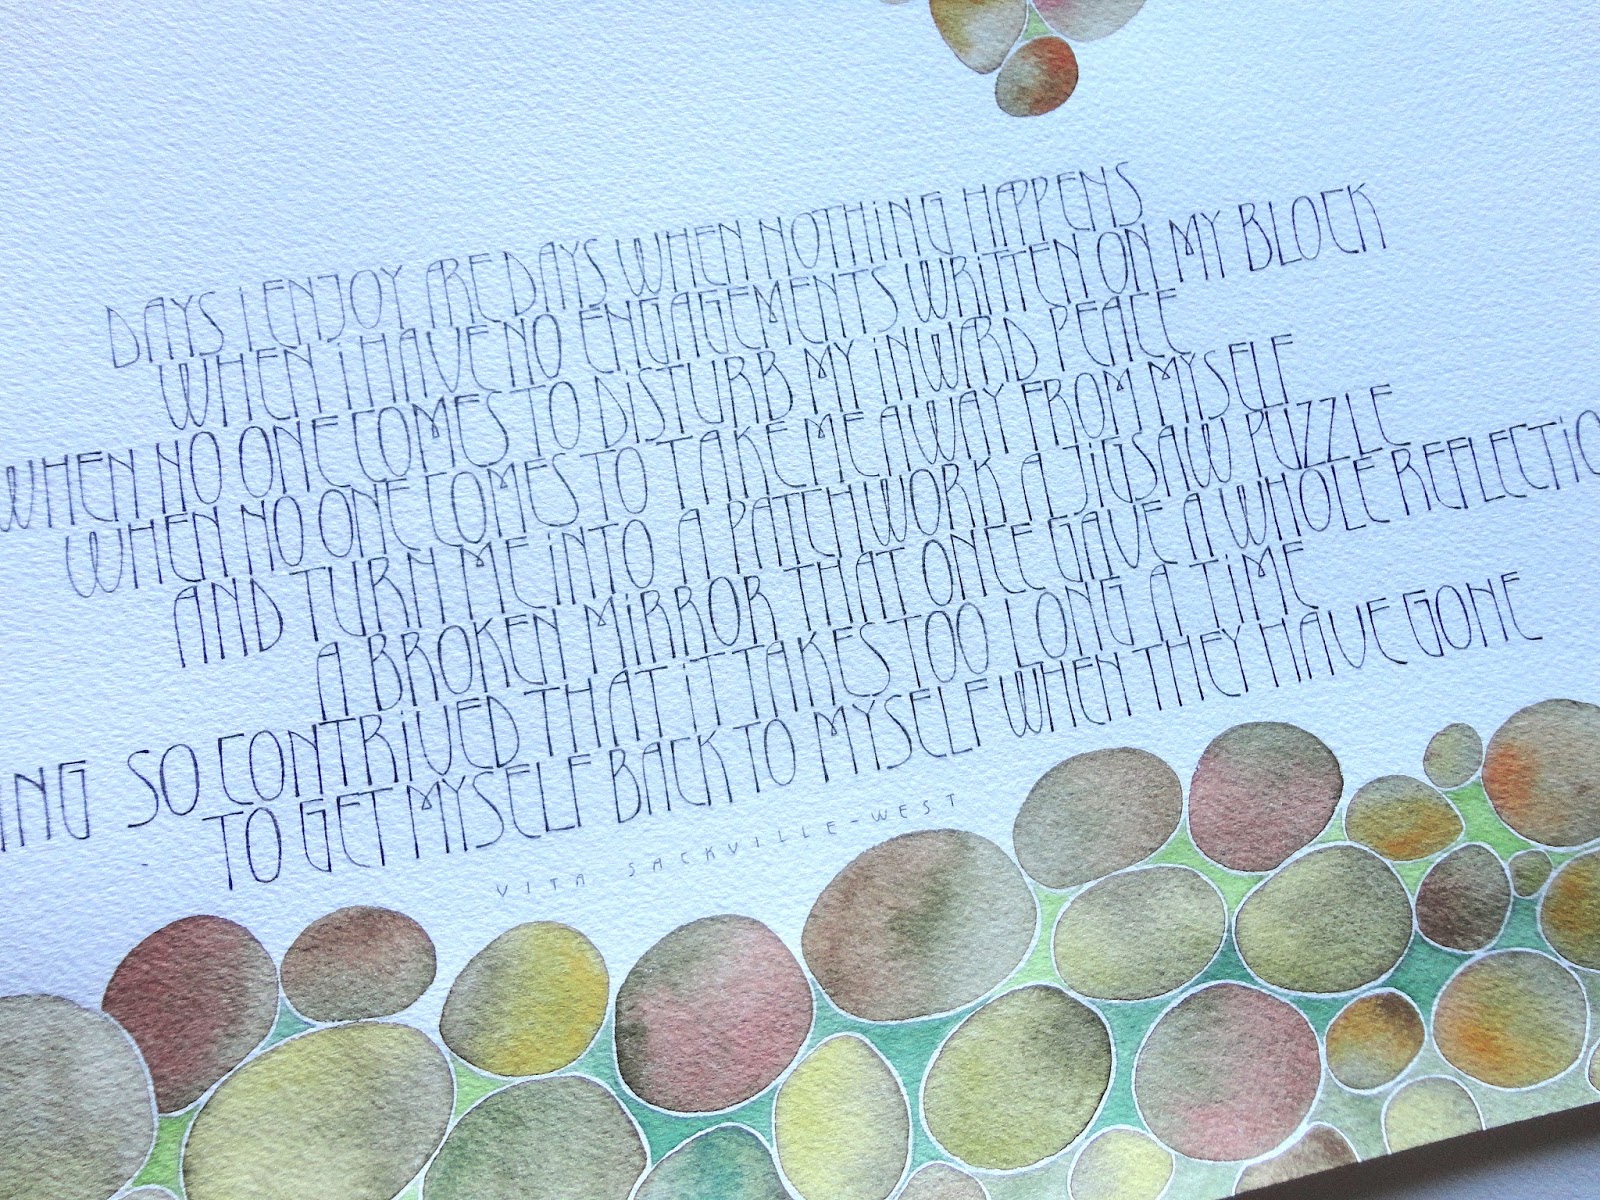 DAYS I ENJOY ARE DAYS WHEN NOTHING HAPPENS
WHEN I HAVE NO ENGAGEMENTS WRITTEN ON MY BLOCK
WHEN NO ONE COMES TO DISTURB MY INWARD PEACE
WHEN NO ONE COMES TO TAKE ME AWAY FROM MYSELF
AND TURN ME INTO A PATCHWORK A JIGSAW PUZZLE
A BROKEN MIRROR THAT ONCE GAVE A WHOLE REFLECTIO
ING SO CONTRIVED THAT IT TAKES TOO LONG A TIME
TO GET MYSELF BACK TO MYSELF WHEN THEY HAVE GONE
VITA SACKVILLE-WEST